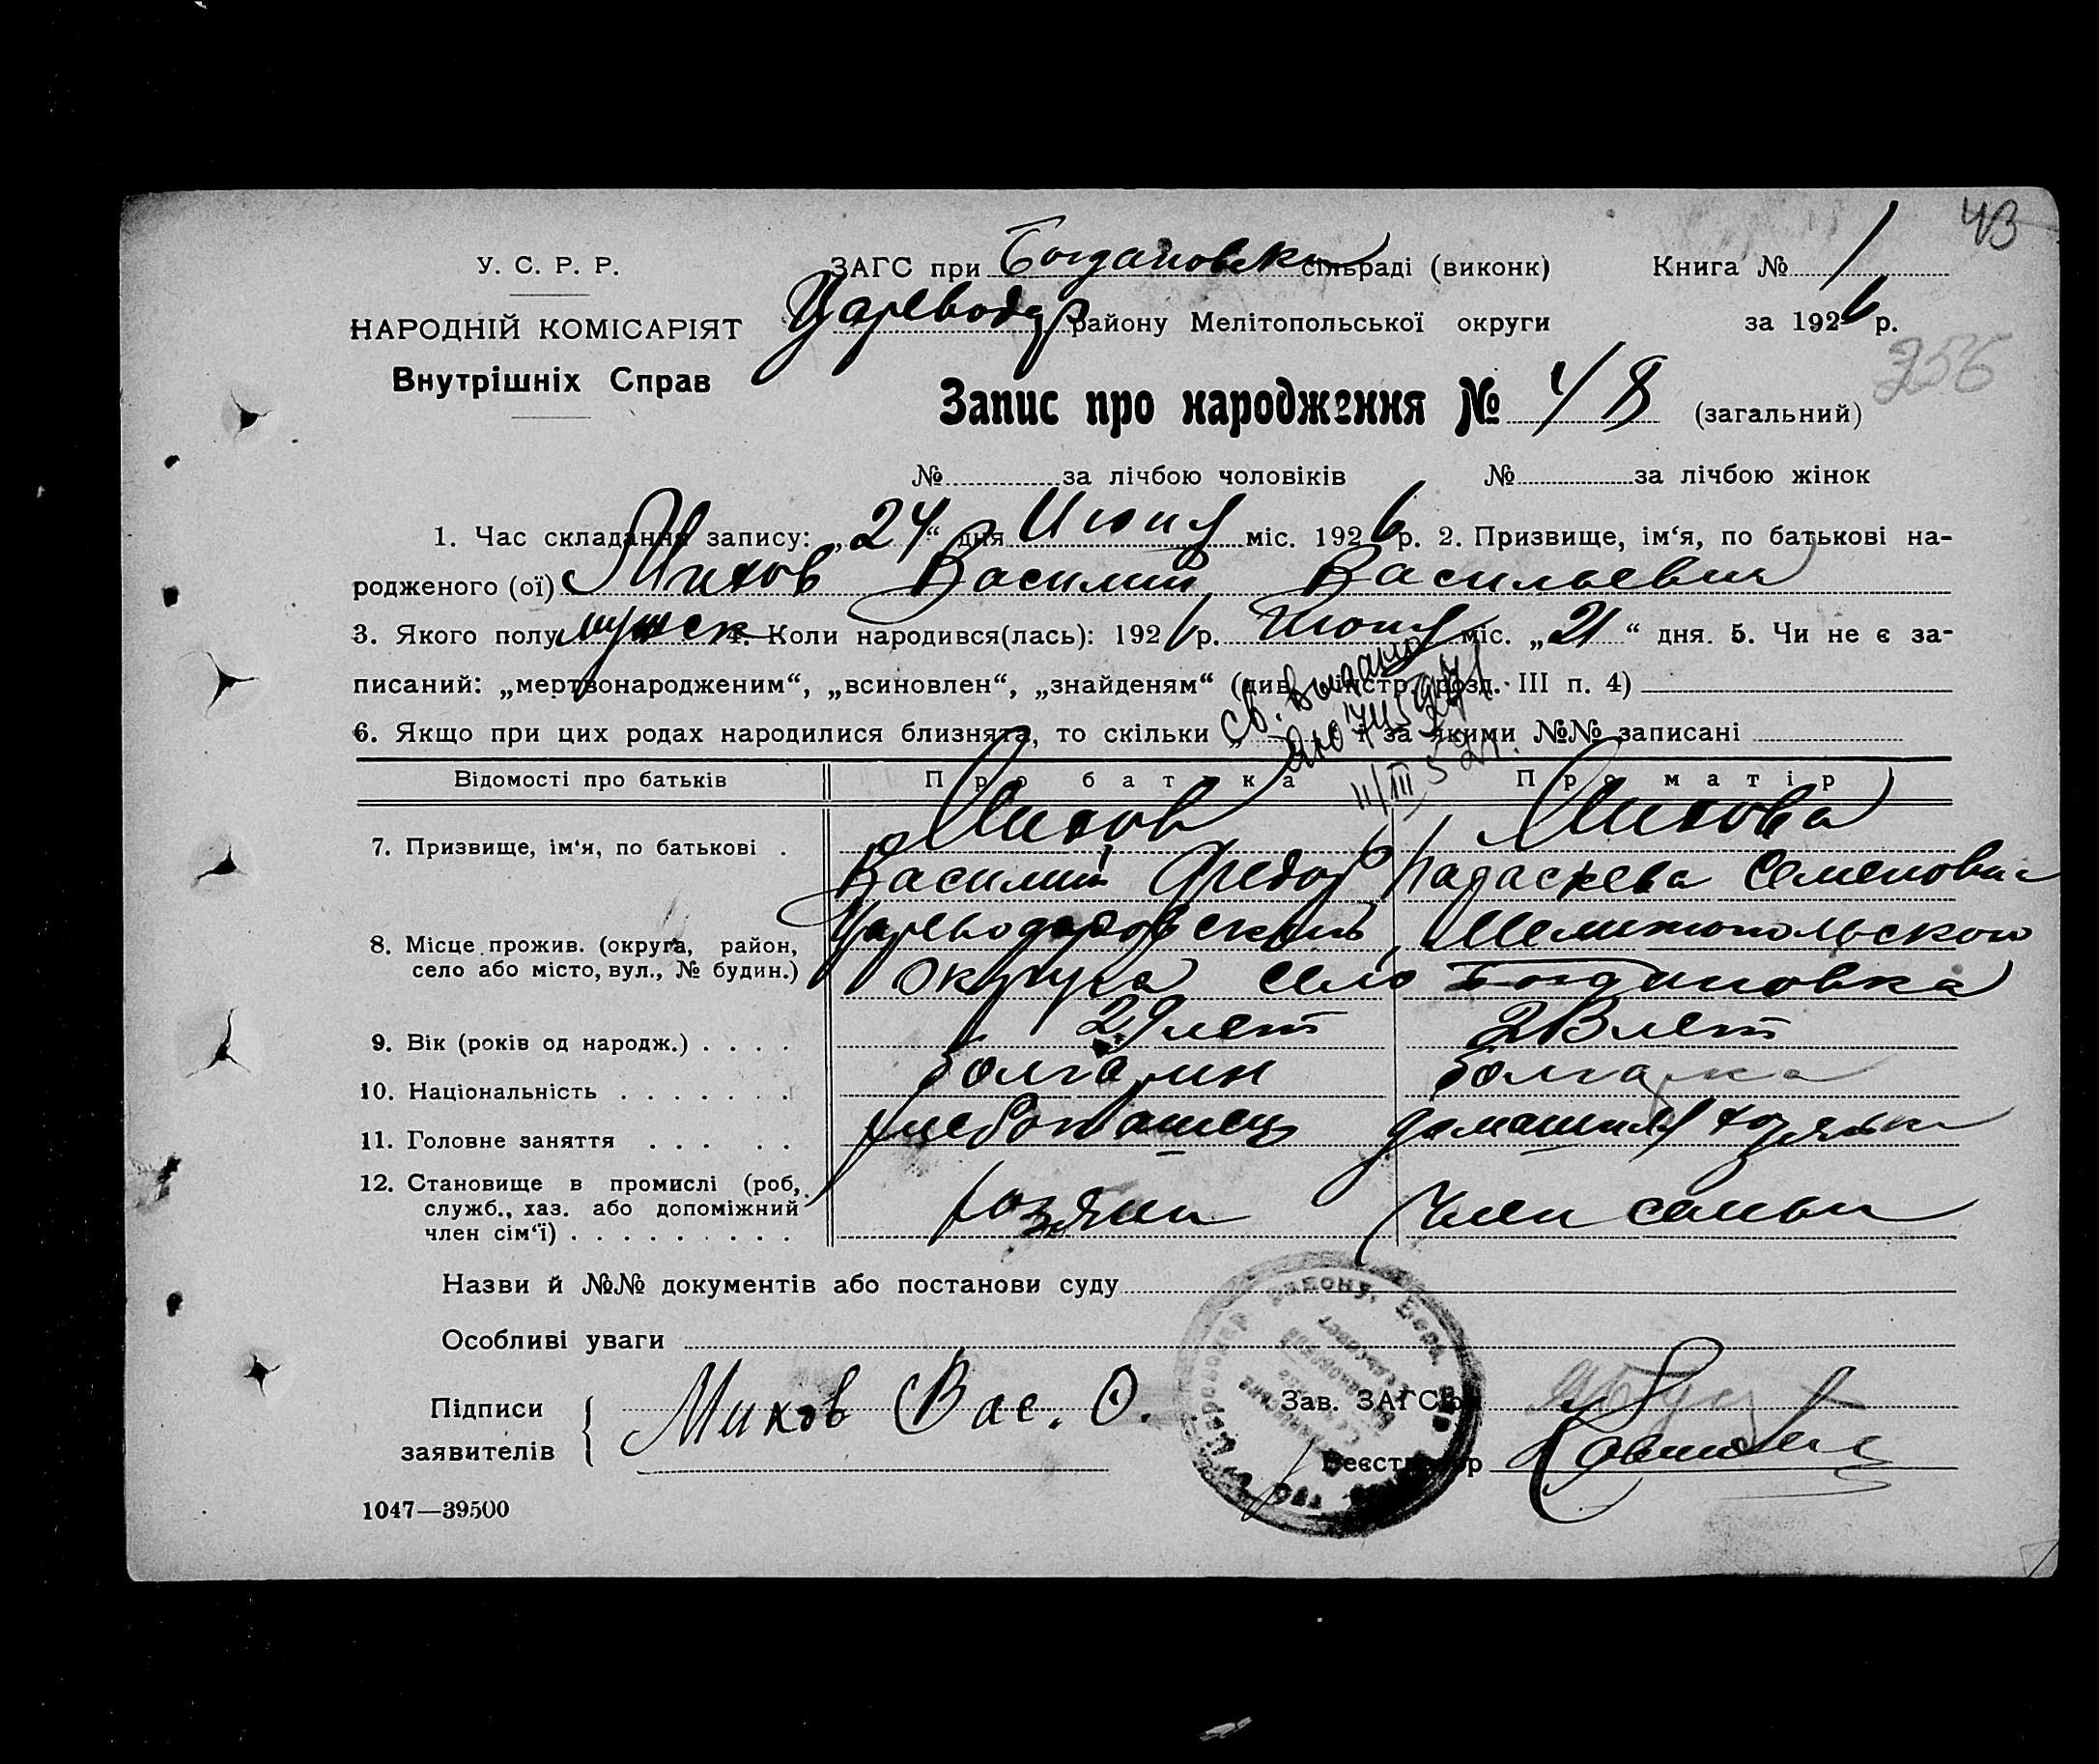 43
У. С. Р. Р.
ЗАГС при Богдановск сільраді (виконк)
Книга № 1
НАРОДНІЙ КОМІСАРІЯТ
Цареводар району Мелітопольської округи
за 1926 р.
Внутрішніх Справ
256
Запис про народження № 48 (загальний)
№ за лічбою чоловіків № за лічбою жінок
1. Час складання запису: „24“ дня Июня міс. 1926 р. 2. Призвище, ім‘я, по батькові на-
родженого (ої) Миков Василий Васильевич
3. Якого полу мужск 4. Коли народився(лась): 1926 р. Июня міс. „21“ дня. 5. Чи не є за-
писаний: „мертвонародженим“, „всиновлен“, „знайденям“ (див. інстр. розд. III п. 4)
6. Якщо при цих родах народилися близнята, то скільки „ і за якими №№ записані
Св. выдано
11/III
Відомості про батьків Про батька Про матір
7. Призвище, ім‘я, по батькові .
Миков Микова
Василий Федор Параскева Семеновна
8. Місце прожив. (округа, район,
село або місто, вул., № будин.)
Мелитопольского
округа село Богдановка
9. Вік (років од народж.) . . . . 29 лет 23 лет
10. Національність . . . . . . . болгарин болгарка
11. Головне заняття . . . . . хлебопашец домашняя хозяйка
12. Становище в промислі (роб,
служб., хаз. або допоміжний
член сім‘ї) . . . . . . . . . хозяин Член семьи
Назви й №№ документів або постанови суду
Особливі уваги
Підписи
заявителів
Миков Вас. Ф.
Зав. ЗАГС‘ом
Реєстратор
1047—39500